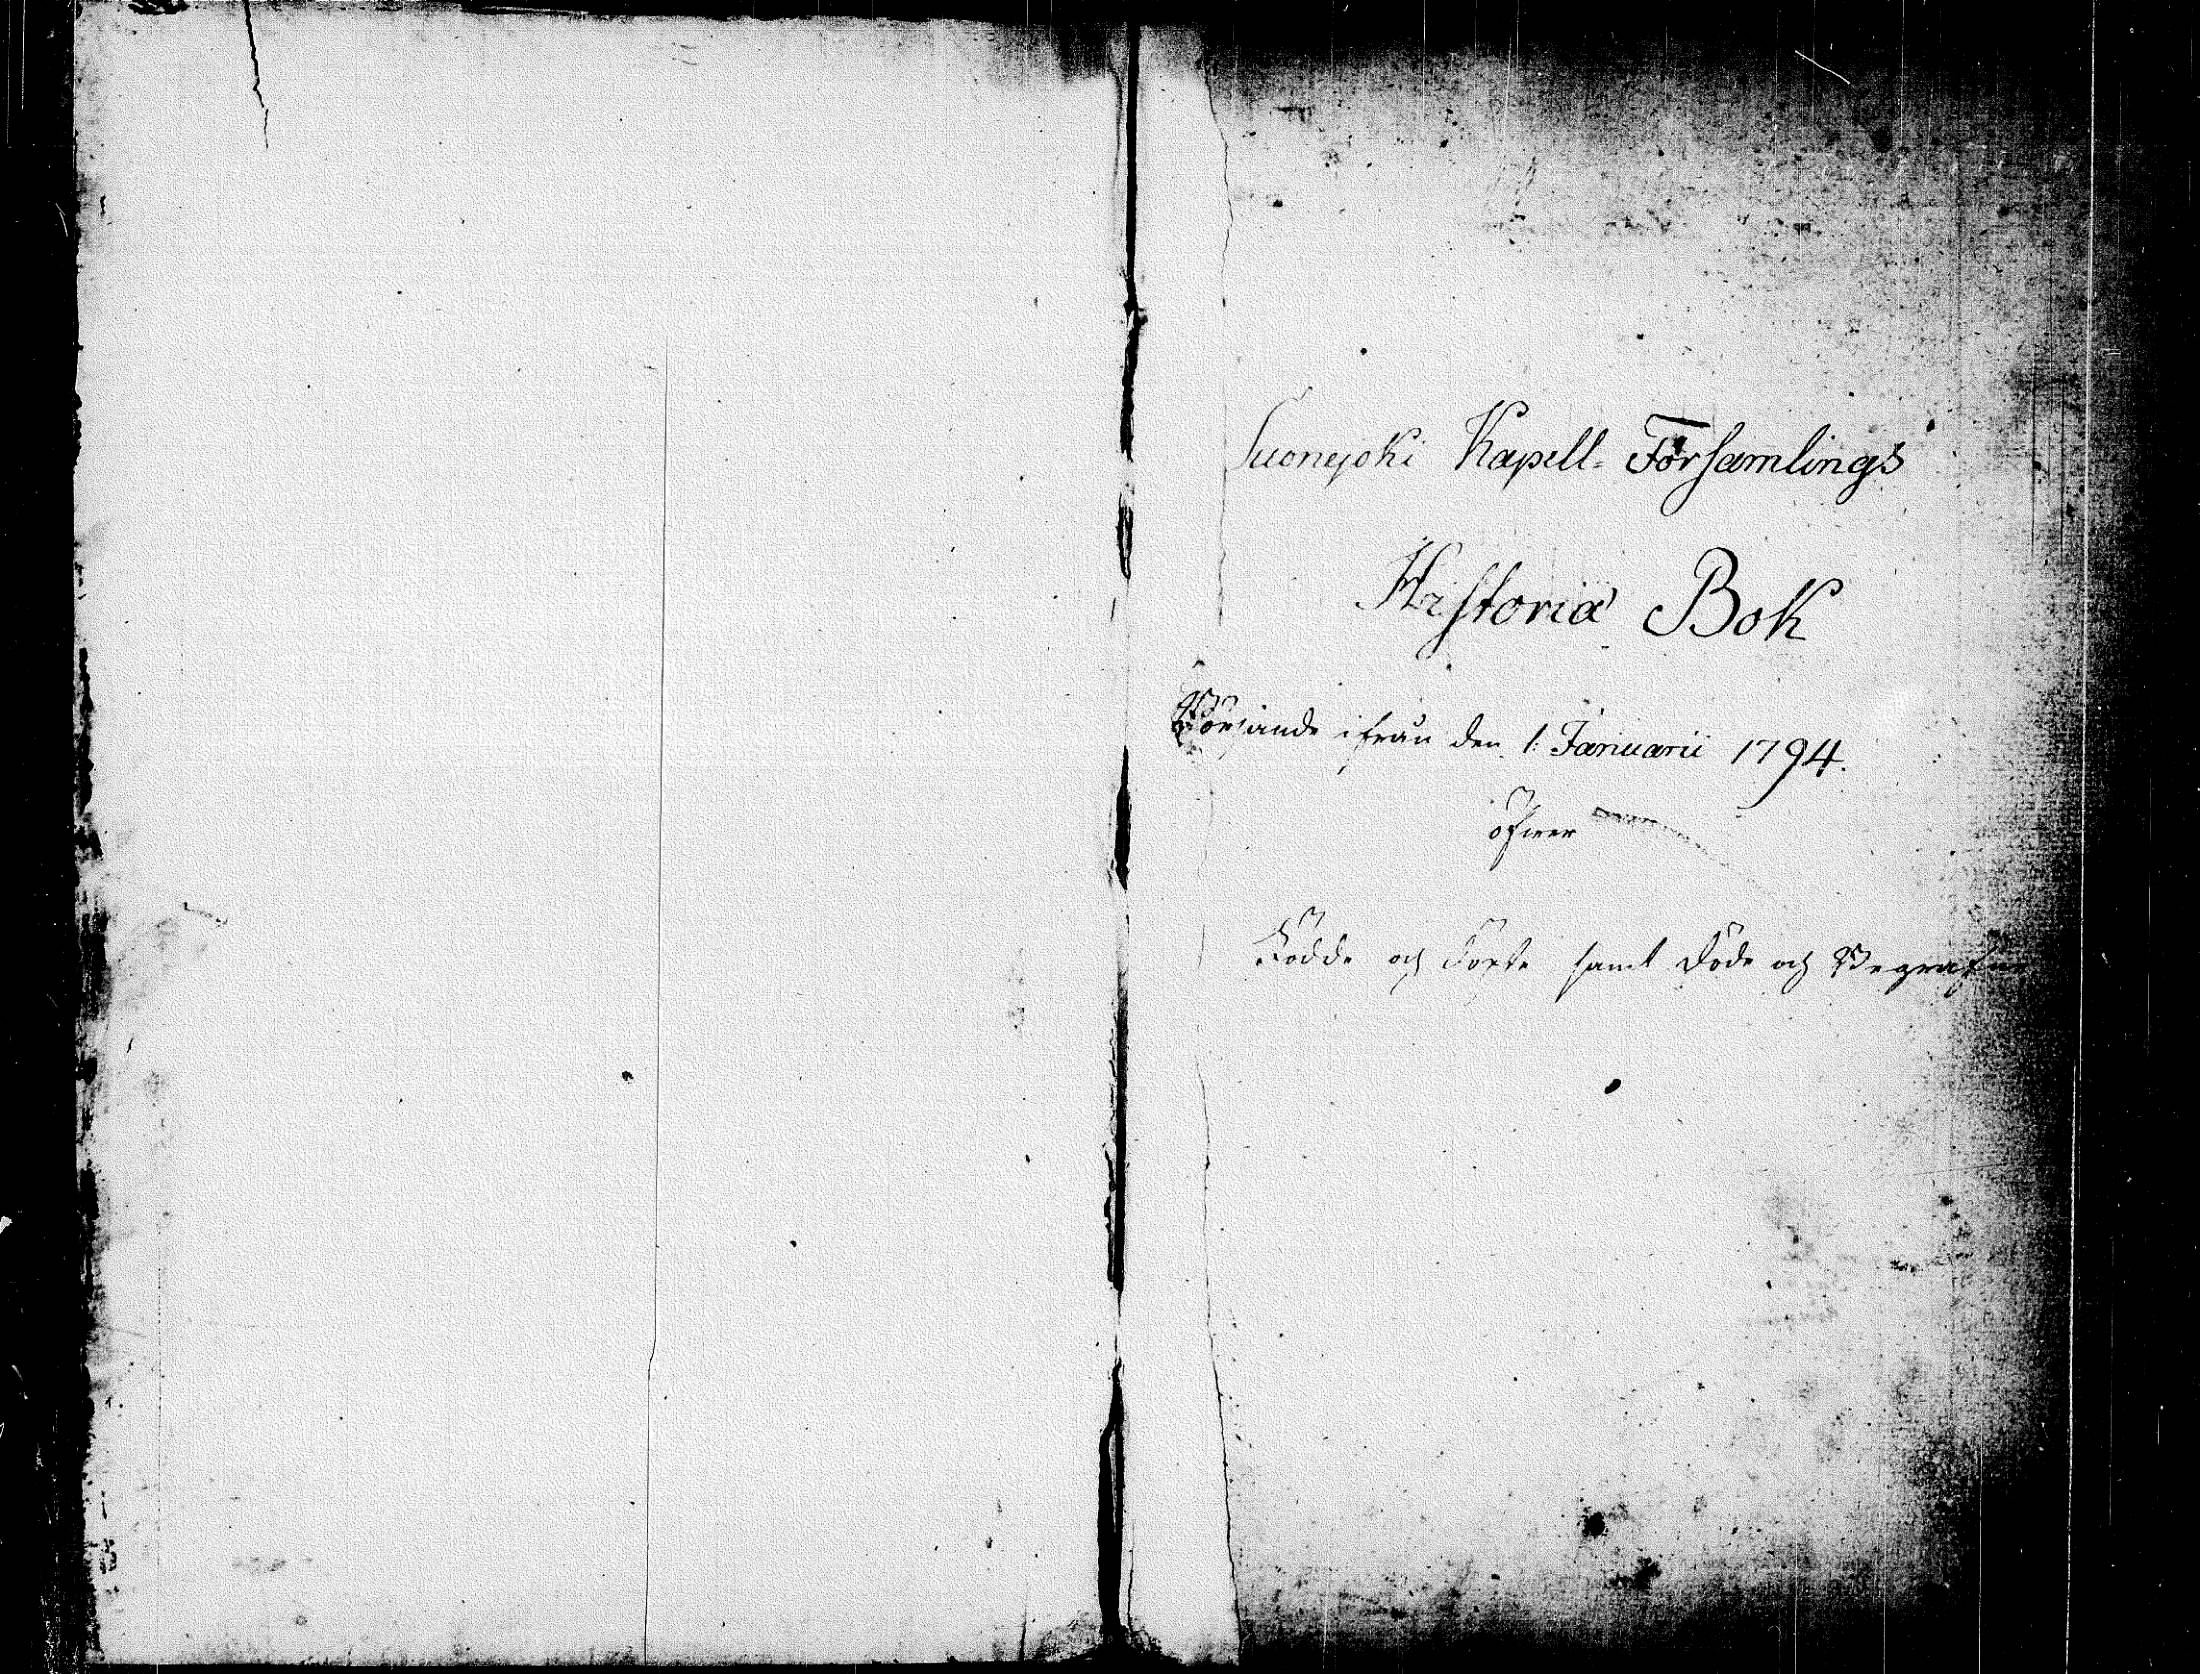 Suonejoki Kapell-Församlings
Historiæ Bok
Börjande ifrån den 1: Januarii 1794.
öfwer
Födde och Döpte samt Döde och Begrafne